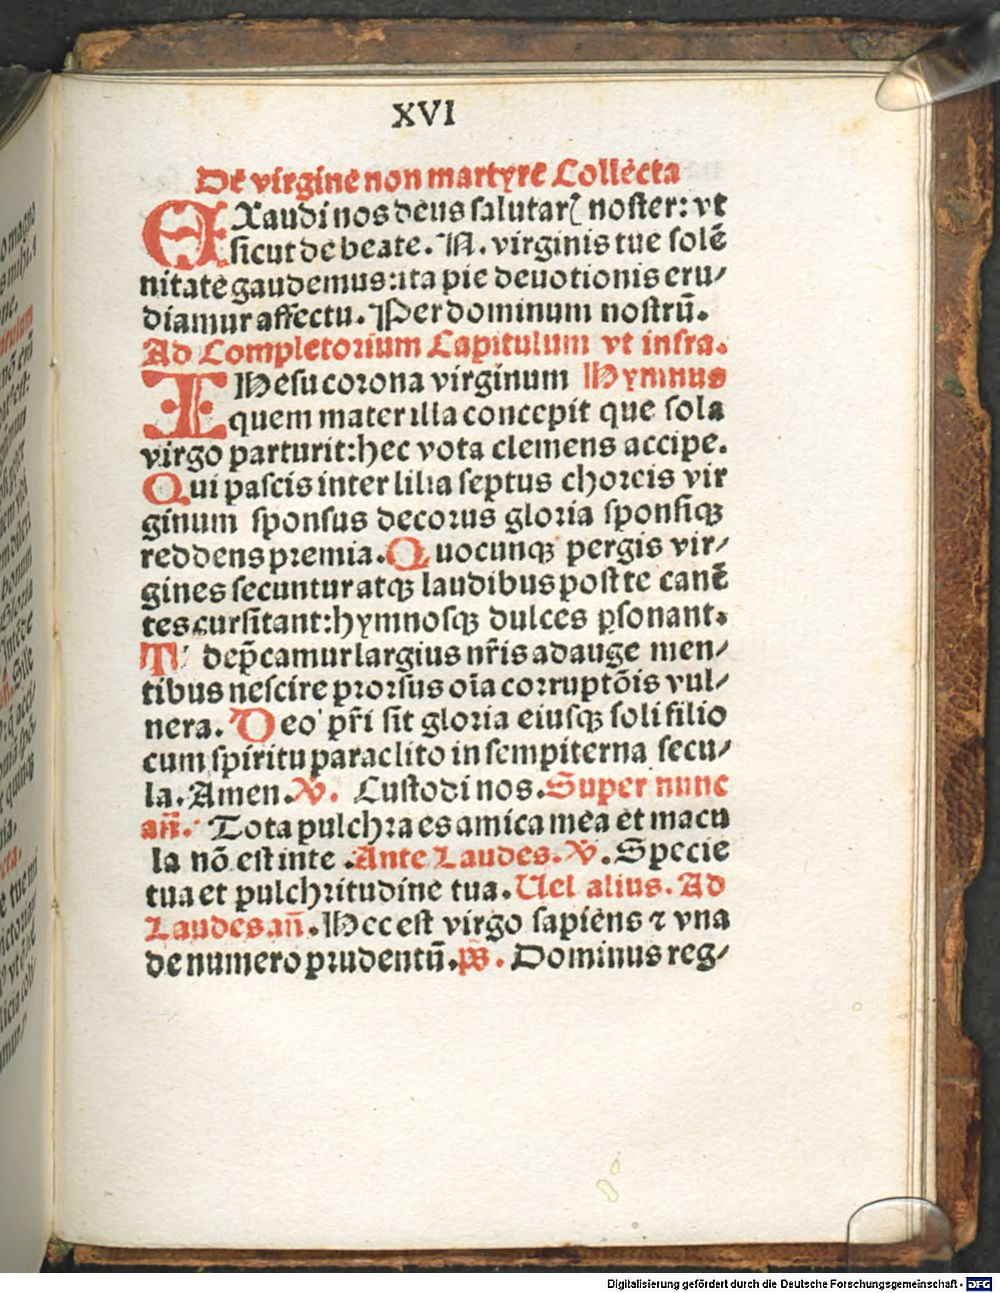 XVI
De virgine non martyre Collecta
EXaudi nos deus salutarꝭ noster: vt
sicut de beate. N. virginis tue solē
nitate gaudemus: ita pie deuotionis eru⸗
diamur affectu. Per dominum nostrū.
Ad Completorium Capitulum vt infra.
IHesu corona virginum Hymnus
quem mater illa concepit que sola
virgo parturit: hec vota clemens accipe.
Qui pascis inter lilia septus choreis vir
ginum sponsus decorus gloria sponsisqꝫ
reddens premia. Quocunqꝫ pergis vir⸗
gines secuntur atqꝫ laudibus post te canē
tes cursitant: hymnosqꝫ dulces ꝑsonant.
Te dep̄camur largius nr̄is adauge men⸗
tibus nescire prorsus oīa corruptōis vul⸗
nera. Deo pr̄i sit gloria eiusqꝫ soli filio
cum spiritu paraclito in sempiterna secu⸗
la. Amen. V. Custodi nos. Super nunc
an̄. Tota pulchra es amica mea et macu
la nō est in te. Ante Laudes. V. Specie
tua et pulchritudine tua. Uel alius. Ad
Laudes an̄. Hec est virgo sapiens ⁊ vna
de numero prudentū. ps. Dominus reg⸗
Digitalisierung gefördert durch die Deutsche Forschungsgemeinschaft - DFG